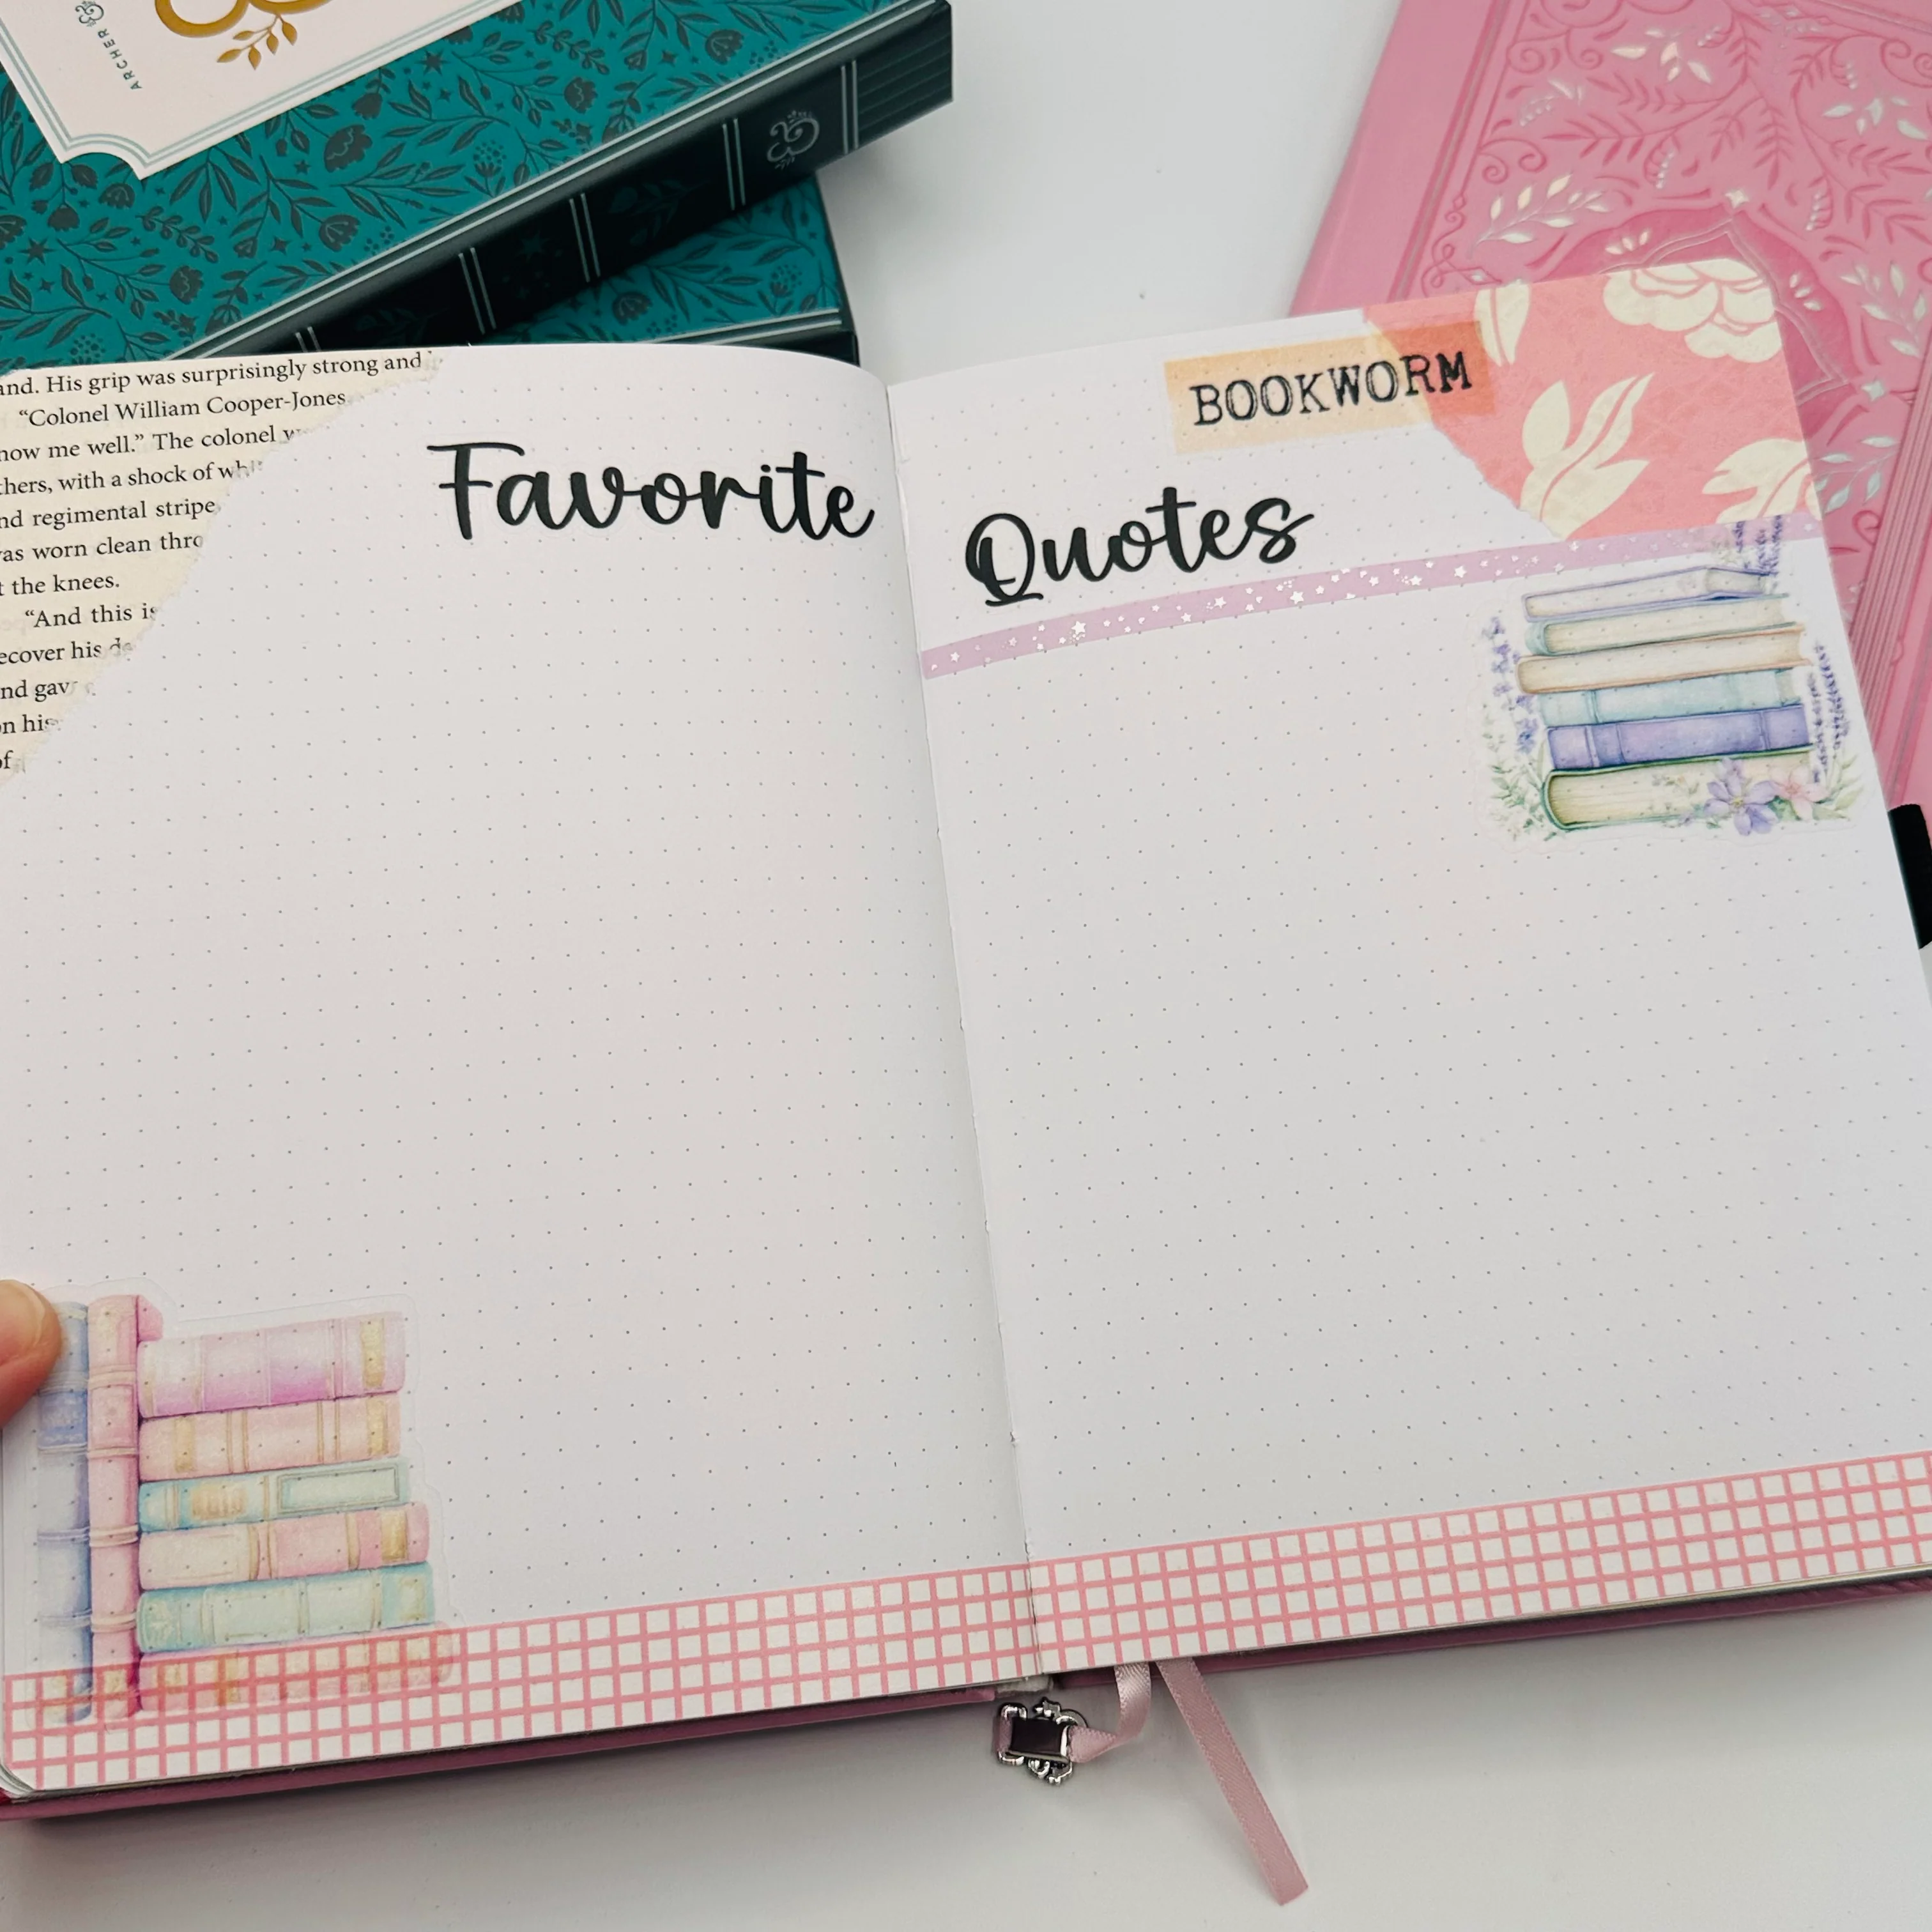 ARCHER
and. His grip was surprisingly strong and
“Colonel William Cooper-Jones
now me well.” The colonel
thers, with a shock of
nd regimental stripe
as worn clean
t the knees.
“And this is
ecover his
nd gav
on his
of
Favorite
BOOKWORM
Quotes